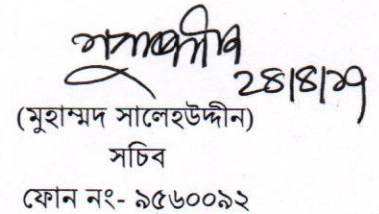 (মুহাম্মদ সালেহউদ্দীন)
সচিব
ফোন নং- ৯৫৬০০৯২